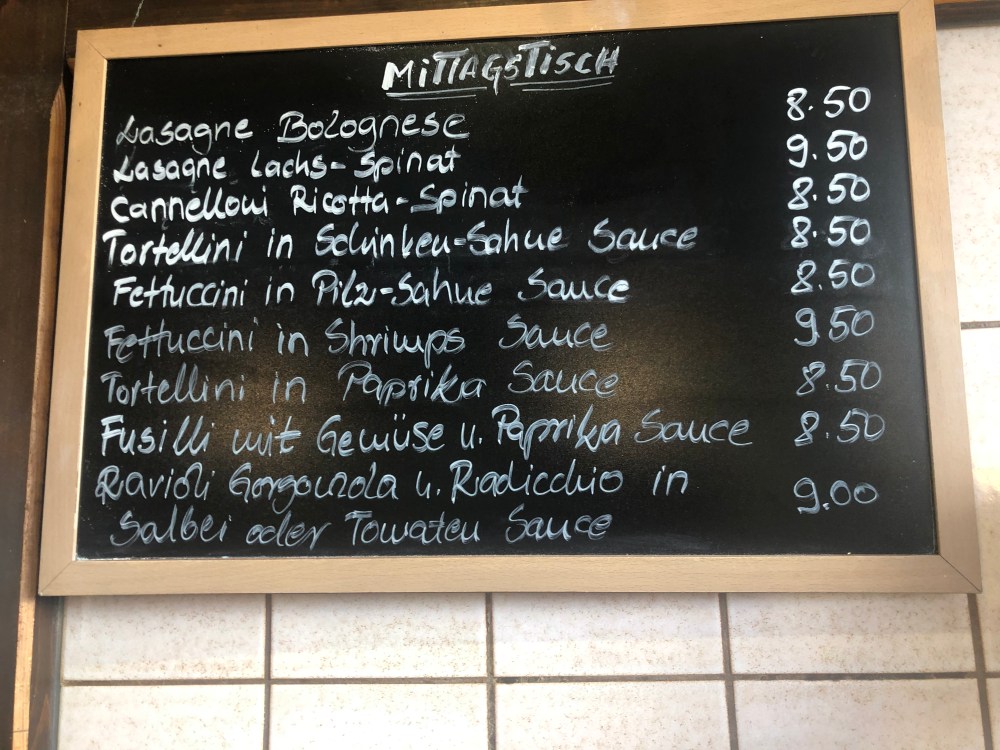 MiTTAGSTiSCH
Lasagne Bolognese 8.50
Lasagne Lachs-Spinat 9.50
Cannelloni Ricotta-Spinat 8.50
Tortellini in Schinken-Sahne Sauce 8.50
Fettuccini in Pilz-Sahne Sauce 8.50
Fettuccini in Shrimps Sauce 9.50
Tortellini in Paprika Sauce 8.50
Fusilli mit Gemüse u. Paprika Sauce 8.50
Ravioli Gorgonzola u. Radicchio in 9.00
Salbei oder Tomaten Sauce